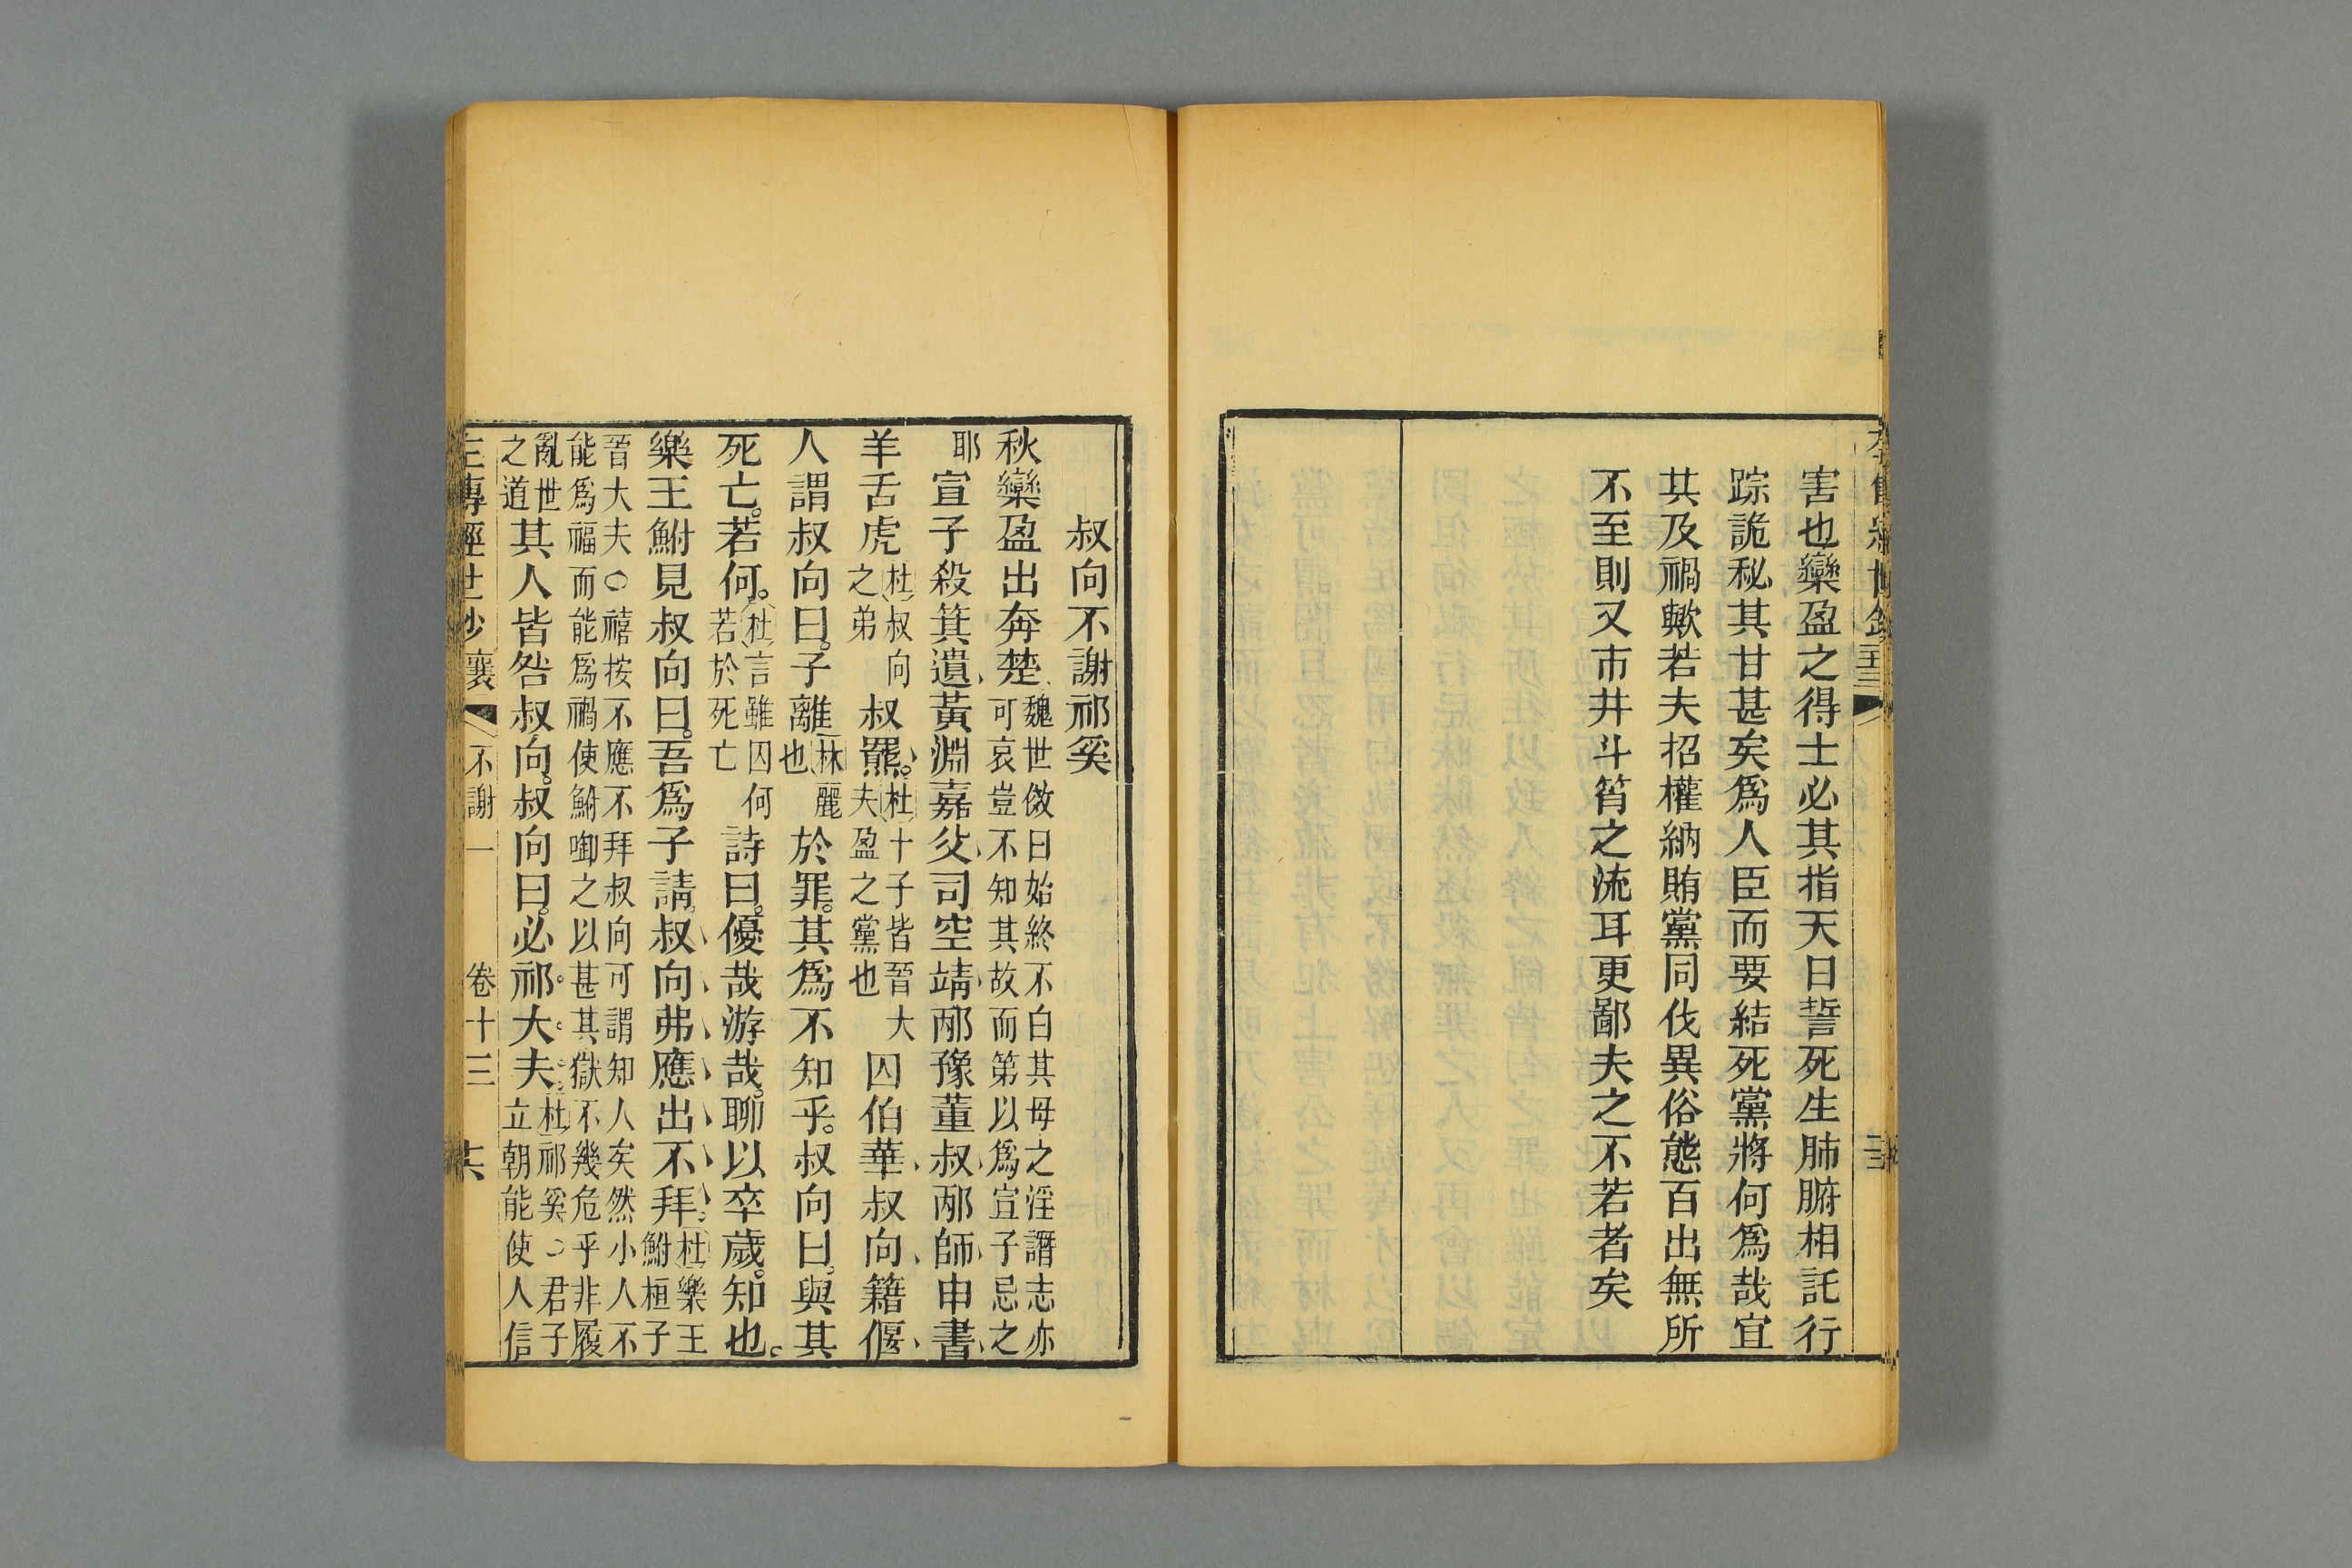 害也欒盈之得士必其指天日誓死生肺腑相託行
踪詭秘其甘甚矣爲人臣而要結死黨將何爲哉宜
其及禍歟若夫招權納賄黨同伐異俗態百出無所
不至則又市井斗筲之流耳更鄙夫之不若者矣
叔向不謝祁奚
秋欒盈出奔楚魏世傚曰始終不白其母之淫譖志亦可哀豈不知其故而第以爲宣子忌之
耶宣子殺箕遺黃淵嘉父司空靖邴豫董叔邴師申書
羊舌虎杜叔向之弟叔羆杜十子皆晉大夫盈之黨也囚伯華叔向籍偃
人謂叔向曰。子離林麗也於罪。其爲不知乎。叔向曰。與其
死亡。若何。杜言雖囚何若於死亡詩曰。優哉游哉。聊以卒歲。知也。
樂王鮒見叔向曰。吾爲子請。叔向弗應出不拜。杜樂王鮒桓子
晉大夫○禧按不應不拜叔向可謂知人矣然小人不能爲福而能爲禍使鮒啣之以甚其獄不幾危乎非履
亂世之道其人皆咎叔向。叔向曰。必祁大夫。杜祁奚○君子立朝能使人信
左傳經世鈔 襄 不謝一 卷十三 六